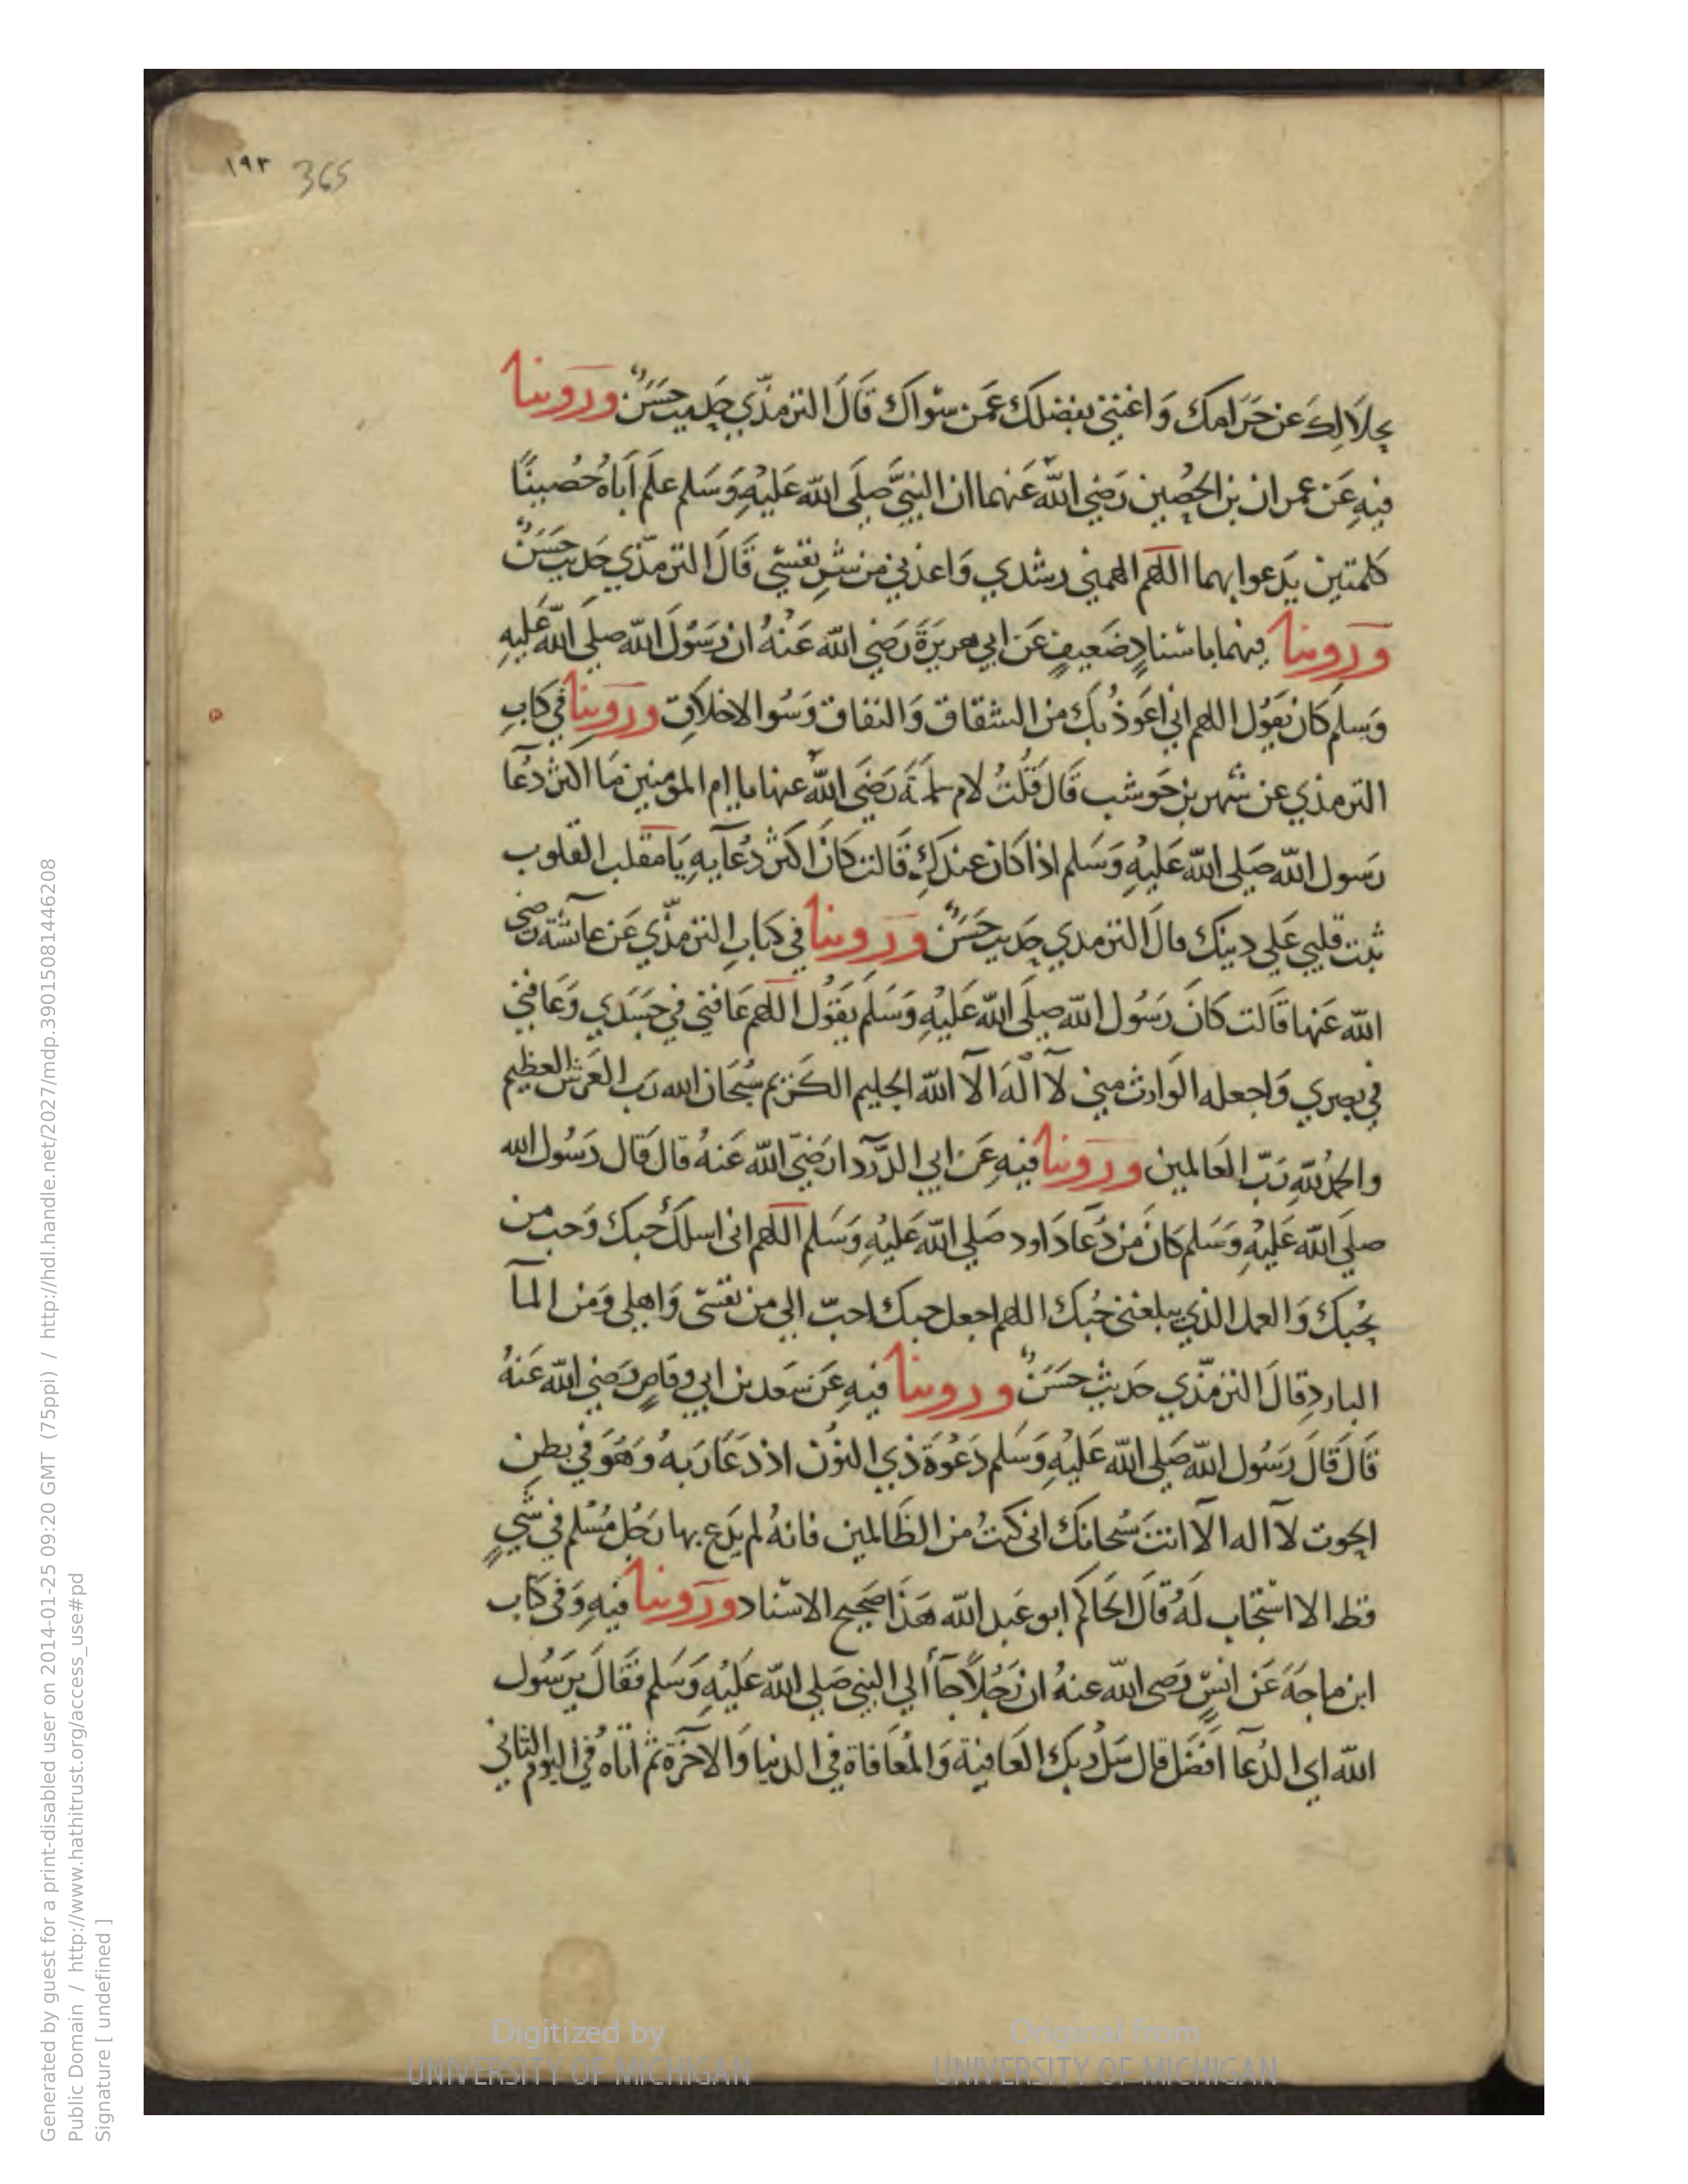 ١٩٣ 365
بحلالك عن حَرَامك وَاغنني بفضلك عَمن سوَاك قالَ الترمذي حَديث حَسَنٌ ورَوينا
فيهِ عَن عمران بن الحصين رَضي الله عَنهما ان النبيَّ صَلى الله عَليهِ وَسَلم علم اَباهُ حُصينًا
كلمتين يدَعوا بهما اللهم الهمني رشدي وَاعذني من شرِ نفسي قَالَ الترمذي حَديث حَسَنٌ
ورَوينا فيهما باسنادٍ ضَعيفٍ عَن ابي هريرَةَ رَضي الله عَنْهُ ان رَسُولَ الله صلى الله عَليهِ
وَسلم كان يَقول اللهم اني اَعوذُ بكَ من الشقاق وَالنفاق وَسُوا الاخلاقِ ورَوينا في كتابِ
الترمذي عن شهر بن حَوشب قَال قُلتُ لام سَلمةَ رَضَي الله عنها يا ام المومنين مَا اكثر دعَا
رَسول الله صَلى الله عَليهِ وَسَلم اذا كان عندكِ قالت كانَ اكثر دعَآيهِ يَا مقلب القلوب
ثبت قلبي عَلى دينك قال الترمدي حَديث حَسَنٌ ورَوينا في كتابِ الترمذي عَن عآئشة رضي
الله عَنها قالت كانَ رَسُول الله صلى الله عَليْهِ وَسَلَم يَقوُل اللهم عَافني في جَسَدي وَعَافني
في بصري وَاجعله الوَارث مني لآ الهَ الآ الله الحليم الكريم سُبحَان الله رَب العَرش العظيم
والحمدُ للهِ رَبّ العَالمين ورَوينا فيهِ عَن ابي الدَّردآ رَضيّ الله عَنهُ قال قَال رَسُول الله
صلى الله عَليْهِ وَسَلم كانَ مَن دُعَا دَاود صَلي الله عَليْهِ وَسَلم اللهم اني اسلكَ حُبك وَحب من
يحُبكَ وَالعمل الذي يبلغني حُبك اللهم اجعل حبك احبّ الي من نفسي وَاهلي وَمَن المآ
الباردِ قالَ الترمذّي حَديثٌ حَسَنٌ ورَوينا فيهِ عَن سَعد بن ابي وقاصٍ رَضي الله عَنهُ
قَالَ قَالَ رَسُول الله صَلي الله عَليْهِ وَسَلم دَعْوَةَ ذي النوُن اذ دَعَا رَبهُ وَهُوَ في بطنِ
الحوت لآ اله الآ انتَ سُبحانك اني كنتُ من الظالمين فانهُ لم يَدَع بها رَجُل مُسْلم في شَيٍ
قط الا استجاب لَهُ قالَ الحَاكم ابو عَبد الله هَذا صَحيح الاسناد ورَوينا فيهِ وَفي كتاب
ابن ماجَةَ عَن انسٍ رَضي الله عنهُ ان رَجُلاً جآَ الي النبي صَلي الله عَليْهِ وَسَلم فقَالَ يرَسُول
الله اي الدُعآ افضَل قال سَل رَبك العَافيةَ وَالمُعَافاة في الدنيا وَالاخَرَة ثم اتاهُ في اليوم الثاني
Digitized by
UNIVERSITY OF MICHIGAN
Original from
UNIVERSITY OF MICHIGAN
Generated by guest for a print-disabled user on 2014-01-25 09:20 GMT (75ppi) / http://hdl.handle.net/2027/mdp.39015081446208
Public Domain / http://www.hathitrust.org/access_use#pd
Signature [ undefined ]